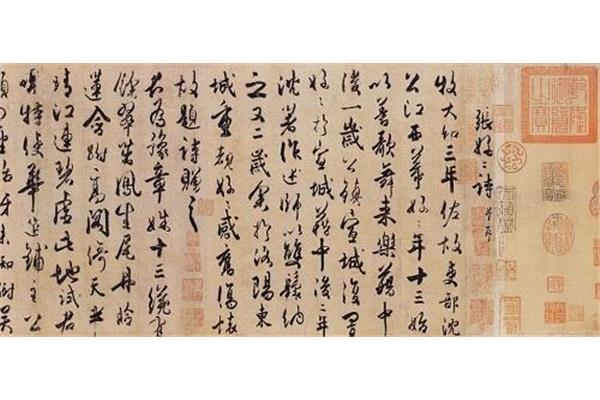 張好好詩并序
牧大和三年佐故吏部沈
公江西幕好好年十三始
以善歌舞来樂籍中
後一歲公鎮宣城復置
好〻於宣城籍中後二年
沈著作述師以雙鬟納
之又二歲余於洛陽東
城重覩好〻感舊傷懷
故題詩贈之
君為豫章姝十三纔有
餘翠茁鳳生尾丹臉
蓮含跗高閣倚天半
晴江連碧虛此地試君
唱特使華筵鋪主公